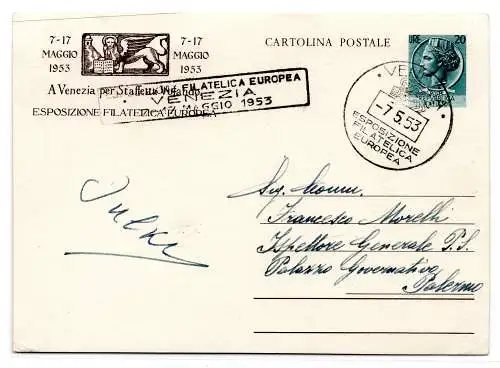 7-17
MAGGIO
1953
7-17
MAGGIO
1953
A Venezia per Staffetta
ESPOSIZIONE FILATELICA EUROPEA
FILATELICA EUROPEA
VENEZIA
MAGGIO 1953
CARTOLINA POSTALE
LIRE 20
-7.5.53
ESPOSIZIONE
FILATELICA
EUROPEA
Sig. Comm.
Francesco Morelli
Ispettore Generale P.S.
Palazzo Governativo
Palermo